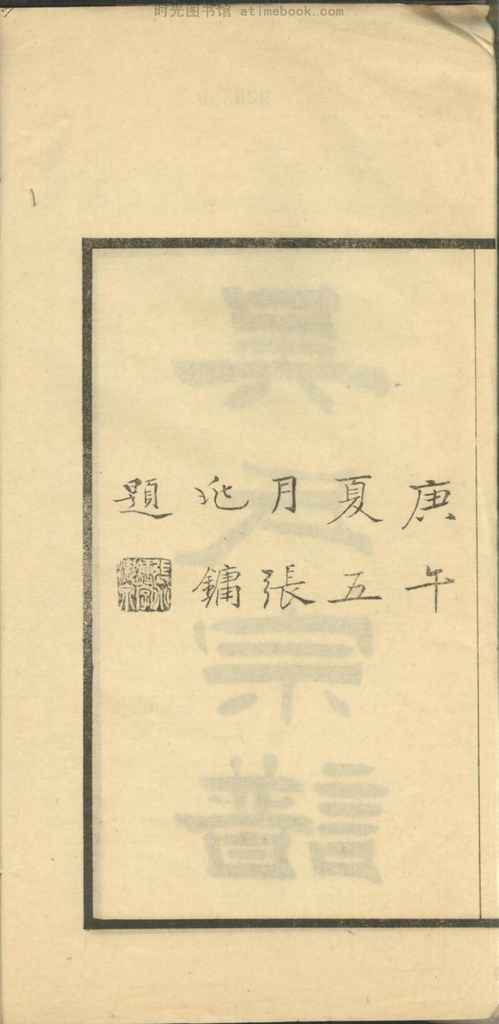 时光图书馆 atimebook.com
庚午
夏五
月張
鏞
題